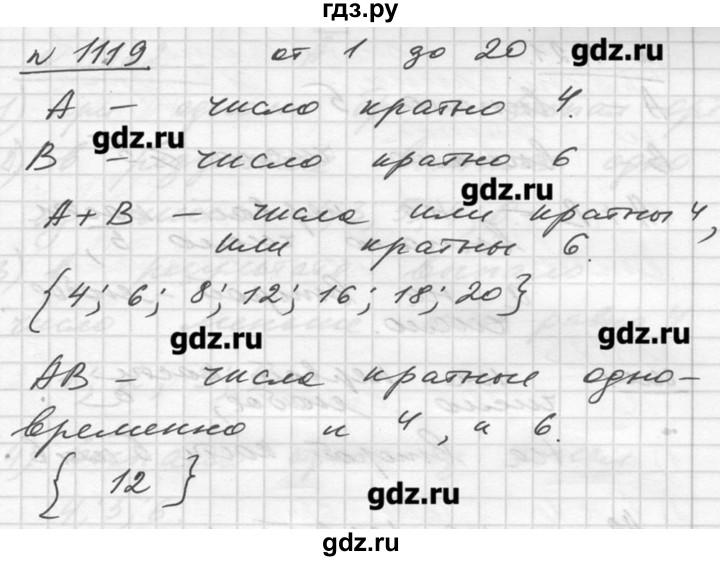 гдз.ру
n 1119 от 1 до 20 gdz.ru
A – число кратно 4.
gdz.ru
B – число кратно 6
gdz.ru
A+B – числа или кратны 4,
или кратны 6.
{4; 6; 8; 12; 16; 18; 20}
gdz.ru gdz.ru
AB – числа кратные одно-
временно и 4, и 6.
{ 12 }
gdz.ru
gdz.ru